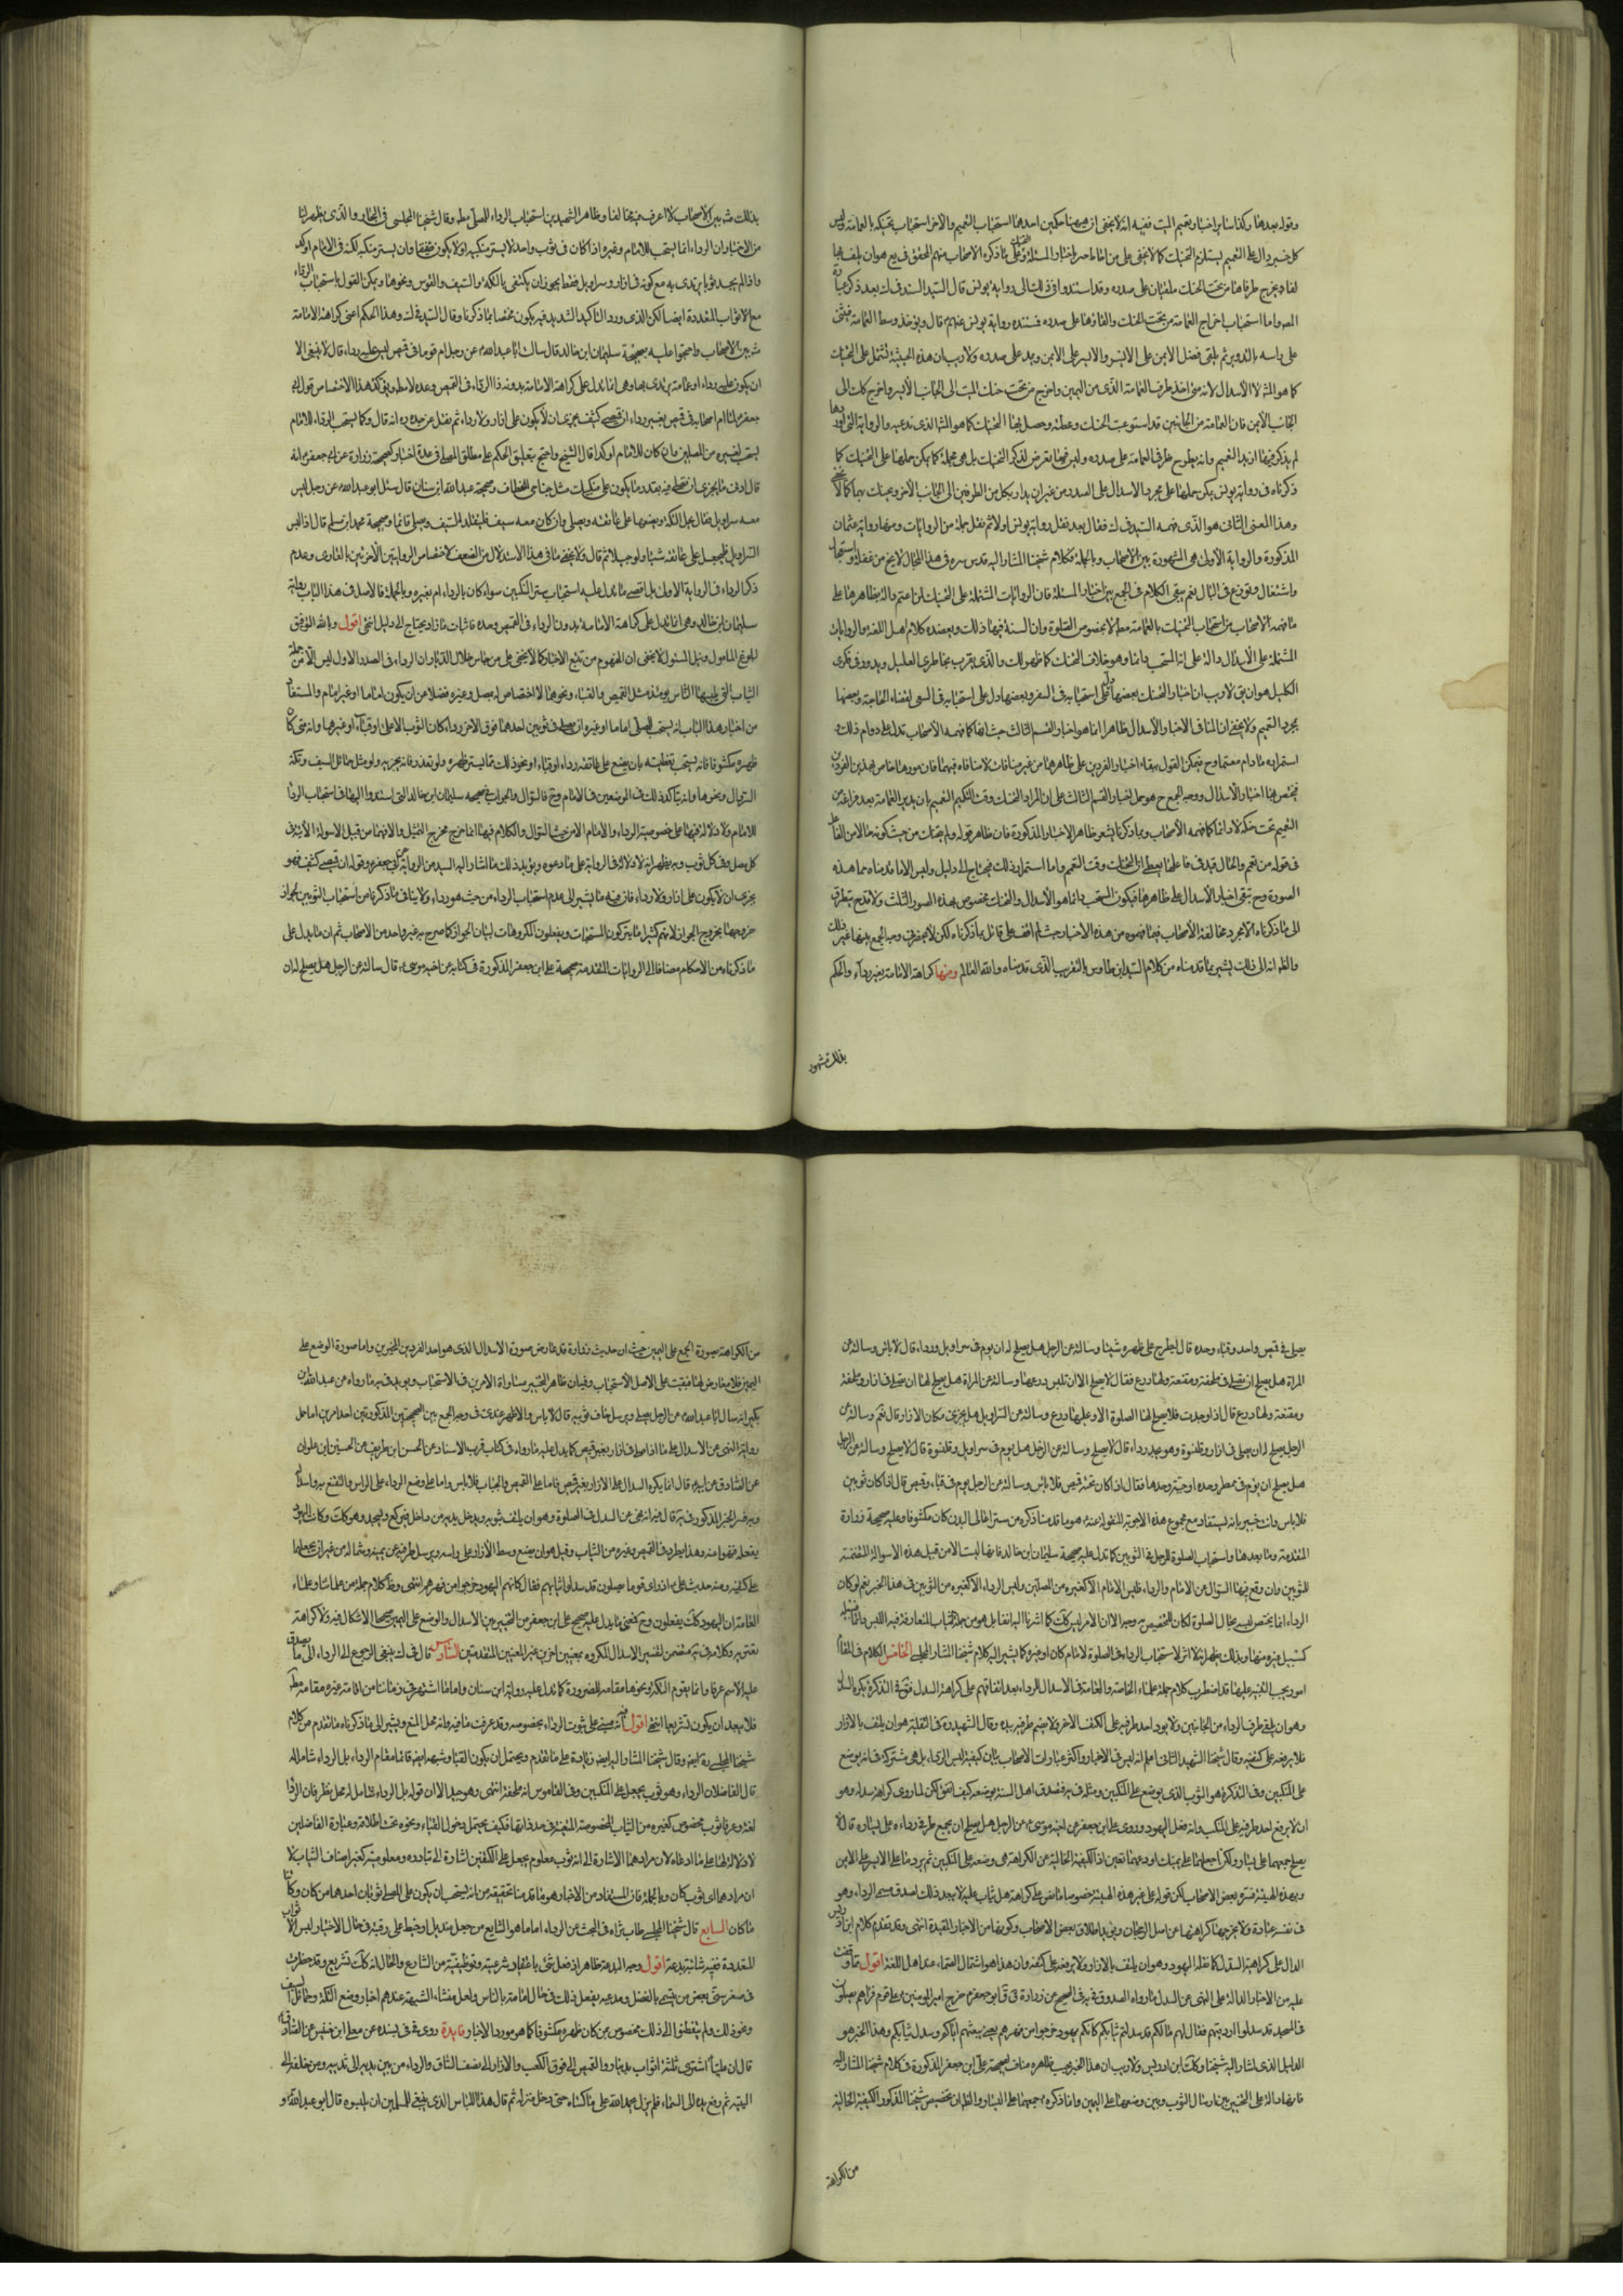 وقوله بعدها وكذا سائر اخبار تعميم الميت ففيه انه لا يخفى ان ههنا حكمين احدهما استحباب التعميم والاخر استحباب تحنكه بالعمامة وليس
كل خبر دال على التعميم يستلزم التحنك كما لا يخفى على من احاط خبرا باخبار المسئلة وعلى ما ذكره الاصحاب منهم المحقق في يع هوان يلف بها
لفا ويخرج طرفاها من تحت الحنك ملقيان على صدره وقد استندوا في ذلك الى رواية يونس قال السيد السند في ك بعد ذكر عبارة
المصر واما استحباب اخراج العمامة من تحت الحنك والقاؤها على صدره فمستنده رواية يونس عنهم قال ويؤخذ وسط العمامة فيثنى
على راسه بالتدوير ثم يلقى فضل الايمن على الايسر والايسر على الايمن ويمد على صدره ولا ريب ان هذه الحيثية تشتمل على التحنك
كما هو المش لا الاسدال لانه متى اخذ طرف العمامة الذي من اليمين واخرج من تحت حنك الميت الى الجانب الايسر واخرج كك الى
الجانب الايمن فان العمامة من الجانبين قد استوعبت الحنك وغطته وحصل بهذا التحنك كما هو المش الذي ندعيه والرواية التي اوردها
لم يذكر فيها ازيد التعميم وانه يطرح طرفا العمامة على صدره وليس فيها تعرض لذكر التحنك بل هي مجملة كما يمكن حملها على التحنك كما
ذكرناه في رواية يونس يمكن حملها على مجرد الاسدال على الصدر من غير ان يدار بكل من الطرفين الى الجانب الاخر ويحنك بهما كما لا يخفى
وهذا المعنى الثاني هو الذي فهمه السيد في ك فقال بعد نقل رواية يونس اولا ثم نقل جملة من الروايات ومنها رواية عثمان
المذكورة والرواية الاولى هي المشهورة بين الاصحاب وبالجملة فكلام شيخنا المشار اليه قدس سره في هذا المجال لا يخ من غفلة واستعجال
واشتغال وتوزع في البال نعم يبقى الكلام في الجمع بين اخبار المسئلة فان الروايات المشتملة على التحنك لمن اعتم دالة بظاهرها على
ما فهمه الاصحاب من استحباب التحنك بالعمامة مط لا بخصوص الصلوة وان السنة فيها ذلك ويعضده كلام اهل اللغة والروايات
المشتملة على الاسدال دالة على انه المستحب دائما وهو خلاف التحنك كما ظهر لك والذي يقرب بخاطري العليل ويدور في فكري
الكليل هو ان يق لا ريب ان اخبار التحنك بعضها دل على استحبابه في السفر وبعضها دل على استحبابه في السعي لقضاء الحاجة وبعضها
بمجرد التعميم ولا يخفى ان المنافي الاخبار والاسدال ظاهرا انما هو اخبار القسم الثالث حيث انها كما فهمه الاصحاب تدل على دوام ذلك و
استمرار به ما دام معتما وح فيمكن القول ببقاء اخبار الفردين على ظاهرهما من غير منافات لا منافاة فيهما فان موردهما خاص بهذين الفردين
فيخص بهما اخبار الاسدال ووجه الجمع ح هو حمل اخبار القسم الثالث على ان المراد التحنك وقت التعميم بان يدير العمامة بعد فراغه من
التعميم تحت حنكه لا دائما كما فهمه الاصحاب وبما ذكرنا يشعر ظاهر الاخبار المذكورة فان ظاهر قوله ولم يتحنك من حيث كونه حالا من الفاعل
في قوله من تعمم والحال قيد في فاعلها يعطي ان التحنك وقت التعمم واما استمرار ذلك فيحتاج الى دليل وليس الا ما قدمناه مما هذه
الصورة وح تبقى اخبار الاسدال على ظاهرها فيكون المستحب دائما هو الاسدال والتحنك مخصوص بهذه الصور الثلث ولا قدح يتطرق
الى ما ذكرناه الا مجرد مخالفة الاصحاب فيما فهموه من هذه الاخبار حيث لم اقف على قائل بما ذكرناه لكن لا يحضرني وجه الجمع بينها غير ذلك
والظ انه الى ذلك يشير ما قدمناه من كلام السيد ابن طاوس بالتقريب الذي قدمناه والله العالم ومنها كراهة الامامة بغير رداء والحكم
بذلك مشهور
بذلك مش بين الاصحاب لا اعرف فيه مخالفا وظاهر الشهيدين استحباب الرداء للمصلي مط وقال شيخنا المجلسي في البحار والذي يظهر لنا
من الاخبار ان الرداء انما يستحب للامام وغيره اذا كان في ثوب واحد لا يستر منكبيه او لا يكون صفيقا وان يستر منكبيه لكنه في الامام اوكد
واذا لم يجد ثوبا يرتدي به مع كونه في ازار وسراويل فقط يجوز ان يكتفي بالتكة والسيف والقوس ونحوها ويمكن القول باستحباب الرداء
مع الاثواب المتعددة ايضا لكن الذي ورد التاكيد الشديد فيه يكون مختصا بما ذكرنا وقال السيد في ك وهذا الحكم اعني كراهة الامامة
مش بين الاصحاب واحتجوا عليه بصحيحة سليمان ابن خالد قال سالت ابا عبدالله عن رجل ام قوما في قميص ليس عليه رداء قال لا ينبغي الا
ان يكون عليه رداء او عمامة يرتدي بها وهي انما تدل على كراهة الامامة بدون الرداء في القميص وحده لا مط ويؤكد هذا الاختصاص قول ابي
جعفر لما ام اصحابه في قميص بغير رداء ان قميصي كثيف يجزي ان لا يكون على ازار ولا رداء ثم نقل عن جده انه قال وكما يستحب الرداء للامام
يستحب لغيره من المصلين وان كان للامام اوكد قال الشيخ واحتج بتعليق الحكم على مطلق المصلي في عدة اخبار كصحيحة زرارة عن ابي جعفر انه
قال ادنى ما يجزي ان تصلي فيه بقدر ما يكون على منكبيك مثل جناحي الخطاف وصحيحة عبدالله ابن سنان قال سئل ابو عبدالله عن رجل ليس
معه سراويل فقال يحل التكة ويضعها على عاتقه ويصلي وان كان معه سيف فليتقلد السيف ويصلي قائما وصحيحة محمد ابن مسلم قال اذا لبس
السراويل فليجعل على عاتقه شيئا ولو حبلا ثم قال ولا يخفى ما في هذا الاستدلال من الضعف لاختصاص الروايتين الاخرتين بالعاري وعدم
ذكر الرداء في الرواية الاولى بل اقصى ما تدل عليه استحباب ستر المنكبين سواء كان بالرداء ام بغيره وبالجملة فالاصل في هذا الباب رواية
سليمان ابن خالد وهي انما تدل على كراهة الامامة بدون الرداء في القميص وحده فاثبات ما زاد يحتاج الى دليل انتهى اقول وبالله التوفيق
لبلوغ المامول ونيل المسئول لا يخفى ان المفهوم من تتبع الاخبار كما لا يخفى على من جاس خلال الديار ان الرداء في الصدر الاول ليس الا من جملة
الثياب التي يلبسها الناس يومئذ مثل القميص والقباء ونحوهما لا اختصاص له بمصل وغيره فضلا من ان يكون اماما او غير امام والمستفاد
من اخبار هذا الباب انه يستحب للمصلي اماما او غيره ان يصلي في ثوبين احدهما فوق الاخر رداء كان الثوب الاعلى او قباء او غيرها وانه متى كان
ظهره مكشوفا فانه يستحب تغطيته بان يضع على عاتقه رداء او قباء او نحو ذلك مما يستر ظهره ولو تعذر فانه يجزيه ولو مثل حمائل السيف وتكة
السروال ونحوها وانه يتاكد ذلك في الموضعين في الامام وح فالسؤال والجواب في صحيحة سليمان ابن خالد التي استندوا اليها في استحباب الرداء
للامام ولا دلالة فيها على خصوصية الرداء والامام الا من حيث السؤال والكلام فيها انما خرج مخرج التمثيل والا فهما من قبيل الاسولة الاتية في
كل مصل وفي كل ثوب وبه يظهر انه لا دلالة في الرواية على ما دعوه ويؤيد ذلك ما اشار اليه السيد من الرواية عن ابي جعفر وقوله ان قميصي كثيف فهو
يجزي ان لا يكون على ازار ولا رداء فان فيه ما يشير الى عدم استحباب الرداء من حيث هو رداء ولا ينافي ما ذكرنا من استحباب الثوبين لجواز
خروجها مخرج الجواز لانهم كثيرا ما يتركون المستحبات ويفعلون المكروهات لبيان الجواز كما صرح به غير واحد من الاصحاب ثم ان ما يدل على
ما ذكرناه من الاحكام مضافا الى الروايات المتقدمة صحيحة علي ابن جعفر المذكورة في كتابه عن اخيه موسى قال سالته عن الرجل هل يصلح له ان
يصلي في قميص واحد وقباء وحده قال ليطرح على ظهره شيئا وسالته عن الرجل هل يصلح له ان يوم في سراويل ورداء قال لا باس وسالته عن
المراة هل يصلح ان تصلي في ملحفة ومقنعة ولها درع فقال لا يصلح الا ان تلبس درعها وسالته عن المراة هل يصلح لها ان تصلي في ازار وملحفة
ومقنعة ولها درع قال اذا وجدت فلا يصلح لها الصلوة الا وعليها درع وسالته عن السراويل هل يجزي مكان الازار قال نعم وسالته عن
الرجل يصلح له ان يصلي في ازار وقلنسوة وهو يجد رداء قال لا يصلح وسالته عن الرجل هل يوم في سراويل وقلنسوة قال لا يصلح وسالته عن الرجل
هل يصلح ان يؤم في ممطر وحده او جبة وحدها فقال اذا كان تحته قميص فلا باس وسالته عن الرجل يوم في قباء وقميص قال اذا كان ثوبين
فلا باس وانت خبير بانه يستفاد مع مجموع هذه الاجوبة المنقولة عنه هو ما قدمنا ذكره من ستر اعالى البدن كان مكشوفا وعليه صحيحة زرارة
المتقدمة وما بعدها واستحباب الصلوة للرجل في الثوبين كما تدل عليه صحيحة سليمان ابن خالد فانها ليست الا من قبيل هذه الاسولة المتضمنة
للثوبين وان وقع فيها السؤال عن الامام والرداء فليس الامام الا كغيره من المصلين وليس الرداء الا كغيره من الثوبين في هذا الخبر نعم لو كان
الرداء انما يختص لبسه بحال الصلوة لكان للتخصيص به وجه الا ان الامر ليس كك كما اشرنا اليه انفا بل هو من جملة الثياب المتعارفة فيه اللبس دائما فسبيله
كسبيل غيره منها وبذلك يظهر انه لا اثر لاستحباب الرداء في الصلوة لامام كان او غيره كما يشير اليه كلام شيخنا المشار المجلسي الخامس الكلام في المقام
امور يجب التنبيه عليها قد اضطرب كلام جملة علماء الخاصة والعامة في الاسدال الرداء بعد اتفاقهم على كراهة السدل فق في التذكرة يكره السدل
وهو ان يلقى طرف الرداء من الجانبين ولا يرد احد طرفيه على الكتف الاخر ولا يضم طرفيه بيده وقال الشهيد في النفلية هو ان يلتف بالازار
فلا يرفعه على كتفيه وقال شيخنا الشهيد الثاني اعلم انه ليس في الاخبار واكثر عبارات الاصحاب بيان كيفية لبس الرداء بل هي مشتركة في انه يوضع
على المنكبين وفي التذكرة هو الثوب الذي يوضع على المنكبين ومثله في يه فصدق اصل السنة بوضعه كيف اتفق لكن لما روي كراهة سدله وهو
ان لا يرفع احد طرفيه على المنكب وانه فعل اليهود وروى علي ابن جعفر عن اخيه موسى عن الرجل هل يصلح ان يجمع طرفي رداءه على يساره قال لا
يصلح جمعهما على اليسار ولكن اجمعهما على يمينك او دعهما تعين اذ الكيفية الخالية عن الكراهة هي وضعه على المنكبين ثم يرد ما على الايسر على الايمن
وبهذه الهيئة فسره بعض الاصحاب لكن قوله على غير هذه الهيئة خصوصا ما نص على كراهته هل يثاب عليه لا يبعد ذلك لصدق مسمى الرداء وهو
في نفسه عبادة ولا يخرجها كراهتها عن اصل الرجحان ويؤيد اطلاق بعض الاصحاب وكونها من الاخبار المقيدة انتهى وقد تقدم كلام ابن ادريس
الدال على كراهية السدل كما نقله اليهود وهو ان يلتف بالازار ولا يرفعه على كتفه وان هذا هو اشتمال الصماء عند اهل اللغة اقول ما وقفت
عليه من الاخبار الدالة على النهي عن السدل ما رواه الصدوق في يه في الصحيح عن زرارة ق قا ابو جعفر خرج امير المومنين على قوم فراهم يصلون
في المسجد قد سدلوا ارديتهم فقال لهم ما لكم قد سدلتم ثيابكم كانكم يهود خرجوا من فهرهم يعني بيعتهم اياكم وسدل ثيابكم وهذا الخبر هو
الدليل الذي اشار اليه شيخنا وكك ابن ادريس ولا ريب ان هذا الخبر بحسب ظاهره مناف لصحيحة علي ابن جعفر المذكورة في كلام شيخنا المشار اليه
فانها دالة على التخيير بين ارسال الثوب وبين وضعها على اليمين وانما ذكره جمعهما على اليسار والظ ان تخصيص شيخنا المذكور الكيفية الخالية
من الكراهة
من الكراهة بصورة الجمع على اليمين حيث ان حديث زرارة قد عارض صورة الاسدال الذي هو احد الفردين المخيرين واما صورة الوضع على
اليمين فلا معارض لها فبقيت على الاصل الاستحباب وفيه ان ظاهر التخيير مساواة الامرين في الاستحباب ويؤيد في يه ما رواه عن عبدالله بن
بكير انه سال ابا عبدالله عن الرجل يصلي ويرسل جانبي ثوبيه قال لا باس والاظهر عندي في وجه الجمع بين الصحيحتين المذكورتين احد امرين اما حمل
رواية النهي عن الاسدال على ما اذا صلى في ازار بغير قميص كما يدل عليه ما رواه في كتاب قرب الاسناد عن الحسن ابن طريف عن الحسين ابن علوان
عن الصادق عن ابيه قال انما يكره السدل على الازار بغير قميص فاما على القميص والجباب فلا باس واما على وضع الرداء على الراس والتقنع به واسدال
وبه فسر الخبر المذكور في يه قال فيه انه نهى عن السدل في الصلوة وهو ان يلتف بثوبه ويدخل يديه من داخل فيركع ويسجد وهو كك وكانت اليهود
يفعله فنهوا عنه وهذا يطرد في القميص وغيره من الثياب وقيل هو ان يضع وسط الازار على راسه ويرسل طرفيه عن يمينه وشماله من غير ان يجعلها
على كتفيه ومنه حديث علي انه راى قوما يصلون قد سدلوا ثيابهم فقال كانهم اليهود خرجوا من فهرهم انتهى وظ كلام جملة من علمائنا وعلماء
العامة ان اليهود كك يفعلون وح فمعنى ما يدل عليه صحيحة علي ابن جعفر من التخيير بين الاسدال والوضع على اليمين صحيحا لا اشكال فيه ولا كراهة
تعتريه وكلامه في يه متضمن لتفسير الاسدال المكروه بمعنيين اخرين غير المعنيين المتقدمين السادس قال في ك ينبغي الرجوع الى الرداء الى ما يصدق
عليه الاسم عرفا وانما يقوم التكة ونحوها مقامه للضرورة كما تدل عليه رواية ابن سنان واما ما اشتهر في زماننا من اقامة غيره مقامه مط
فلا يبعد ان يكون تشريعا انتهى اقول فيه انه مبني على ثبوت الرداء بخصوصه وقد عرفت ما فيه وانه محل المنع ويشير الى ما ذكرناه ما تقدم من كلام
شيخنا المجلسي ره ايضا وقال شيخنا المشار اليه ايضا زيادة على ما تقدم ويحتمل ان يكون القباء وشبهه ايضا قائما مقام الرداء بل الرداء شاملا له
قال الفاضلان الرداء هو ثوب يجعل على المنكبين وفي القاموس انه ملحفة انتهى وهو جيد الا ان قوله بل الرداء شامل له محل نظر فان الرداء
لغة وعرفا ثوب مخصوص كغيره من الثياب المخصوصة المتعينة في حد ذاتها فكيف يحتمل دخول القباء ونحوه تحت اطلاقه وعبارة الفاضلين
لا دلالة لها على ما ادعاه لان مرادهما الاشارة الى انه ثوب معلوم يجعل على الكتفين اشارة الى تبادره ومعلوميته كغير اصناف الثياب لا
ان مرادهما اي ثوب كان وبالجملة فان المستفاد من الاخبار هو ما قدمنا تحقيقه من انه يستحب ان يكون على المصلي ثوبان احدهما من كان وكائنا
ما كان السابع قال شيخنا المجلسي طاب ثراه في البحث عن الرداء اما ما هو الشايع من جعل منديل او خيط على رقبته في حال الاختيار ليس الا ثواب
المتعددة ففيه شائبة بدعة اقول وجه البدعة ظاهر اذ فعل شي باعتقاد شرعيته وتوظيفيته من الشارع والحال انه كك تشريع وقد حضرت
في سفر ستى بعض من يتسم بالفضل ومدعيه يفعل ذلك في حال امامته بالناس ولعل منشاء الشبهة عندهم اخبار وضع التكة وحمائل السيف
ونحو ذلك ولم يتفطنوا الى ذلك مخصوص بمن كان ظهره مكشوفا كما هو مورد الاخبار فايدة روى في في بسنده عن معلى ابن خنيس عن الصادق
قال ان عليا اشترى ثلثة اثواب بدينار والقميص الى فوق الكعب والازار الى نصف الساق والرداء من بين يديه الى ثدييه ومن خلفه الى
اليتيه ثم رفع يده الى السماء فلم يزل يحمد الله على ما كساه حتى دخل منزله ثم قال هذا اللباس الذي ينبغي للمسلمين ان يلبسوه قال ابو عبدالله و